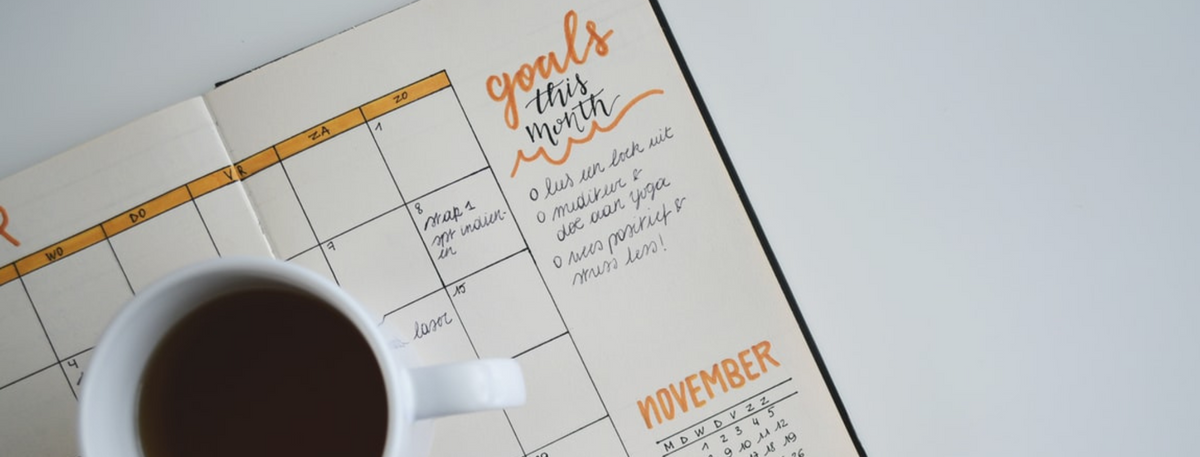 goals
this
month
o lees een boek uit
o mediteer &
doe aan yoga
o wees positief &
stress less!
WO DO VR ZA ZO
1
7 8
stap 1
indien-
en
15
laser
4
NOVEMBER
M D W D V Z Z
1 2 3 4 5
9 10 11 12
17 18 19
26